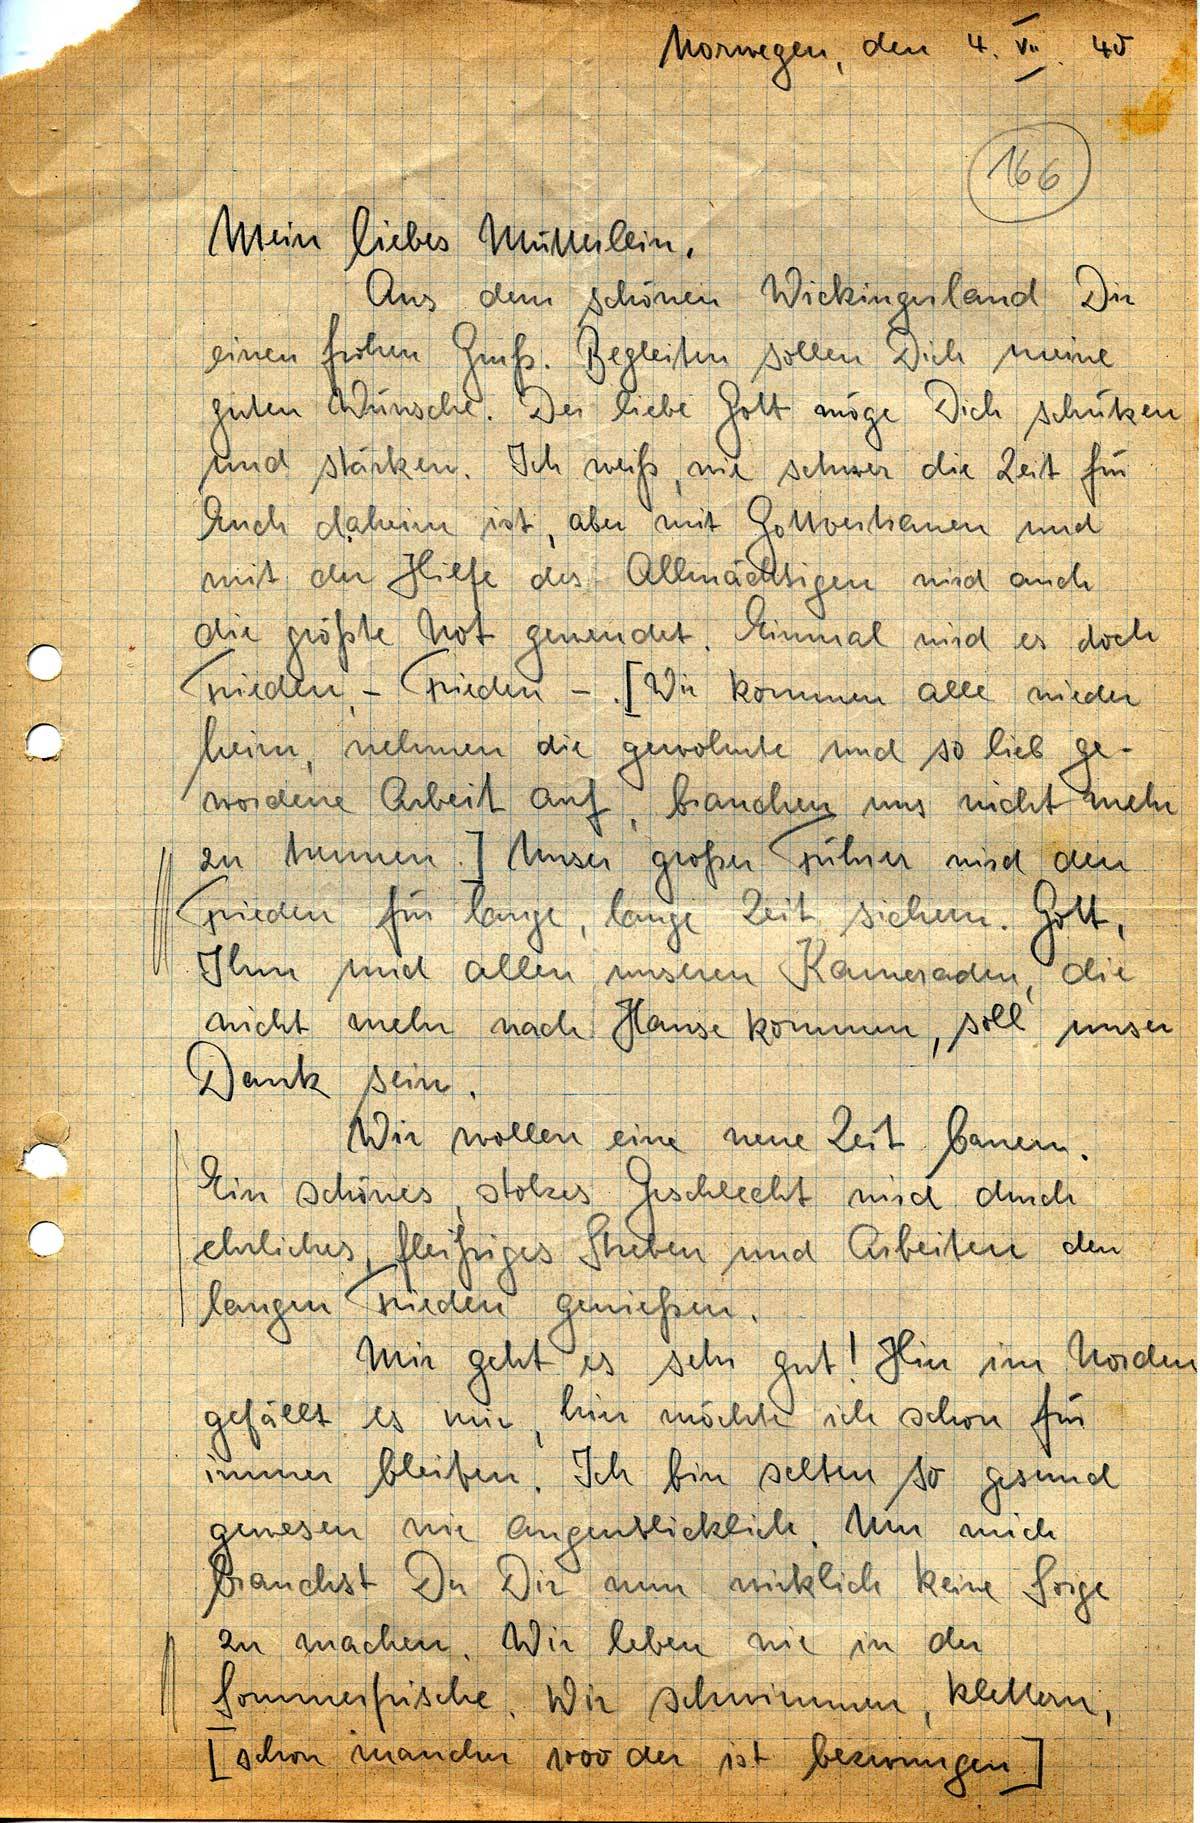 Norwegen, den 4. VII. 40
166
Mein liebes Mütterlein.
Aus dem schönen Wickingerland Dir
einen frohen Gruß. Begleiten sollen Dich meine
guten Wünsche. Der liebe Gott möge Dich schützen
und stärken. Ich weiß, wie schwer die Zeit für
Euch daheim ist, aber mit Gottvertrauen und
mit der Hilfe des Allmächtigen wird auch
die größte Not gewendet. Einmal wird es doch
Frieden, - Frieden - . [Wir kommen alle wieder
heim, nehmen die gewohnte und so lieb ge-
wordene Arbeit auf, brauchen uns nicht mehr
zu trennen.] Unser großer Führer wird den
Frieden für lange, lange Zeit sichern. Gott,
Ihm und allen unseren Kameraden, die
nicht mehr nach Hause kommen, soll unser
Dank sein.
Wir wollen eine neue Zeit bauen.
Ein schönes, stolzes Geschlecht wird durch
ehrliches, fleißiges Streben und Arbeiten den
langen Frieden genießen.
Mir geht es sehr gut! Hier im Norden
gefällt es mir, hier möchte ich schon für
immer bleiben. Ich bin selten so gesund
gewesen wie augenblicklich. Um mich
brauchst Du Dir nun wirklich keine Sorge
zu machen. Wir leben wie in der
Sommerfrische. Wir schwimmen, klettern,
[schon mancher 1000 der ist bezwungen]